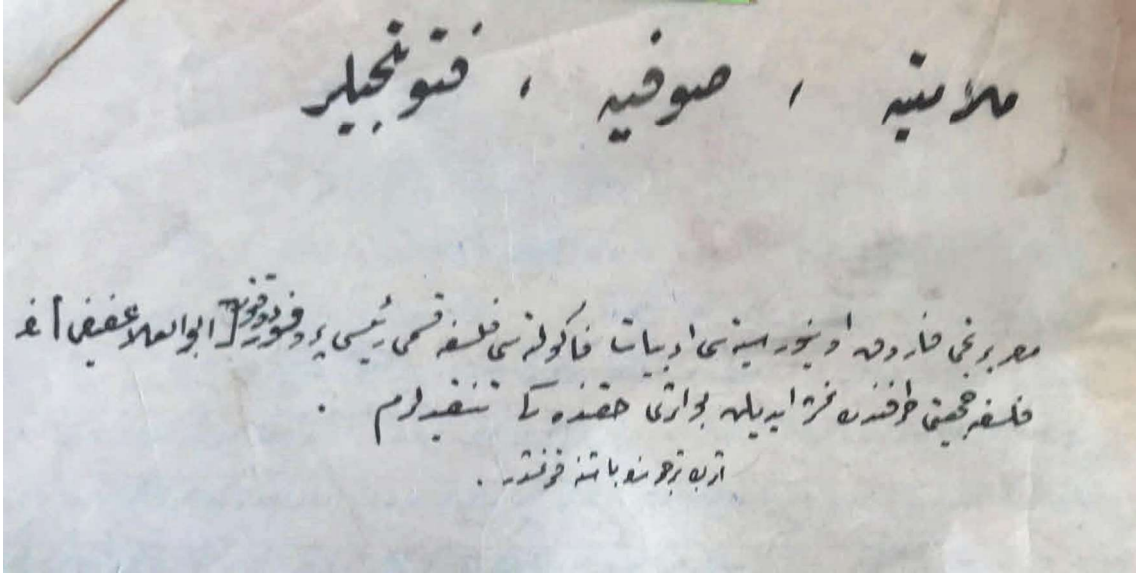 ملامتیه ، صوفیه ، فتوتجیلر
مصر برنجی فاروق اونیورسیته سی ادبیات فاکولته سی فلسفه قسمی رئیسی پروفسور دوقتور [ ابوالعلا عفیفی ] نك
فلسفه جمعیتی طرفندن نشر ایدیلن بو اثری حقنده کی تنقیدلرم .
اثرك ترجمه سنه